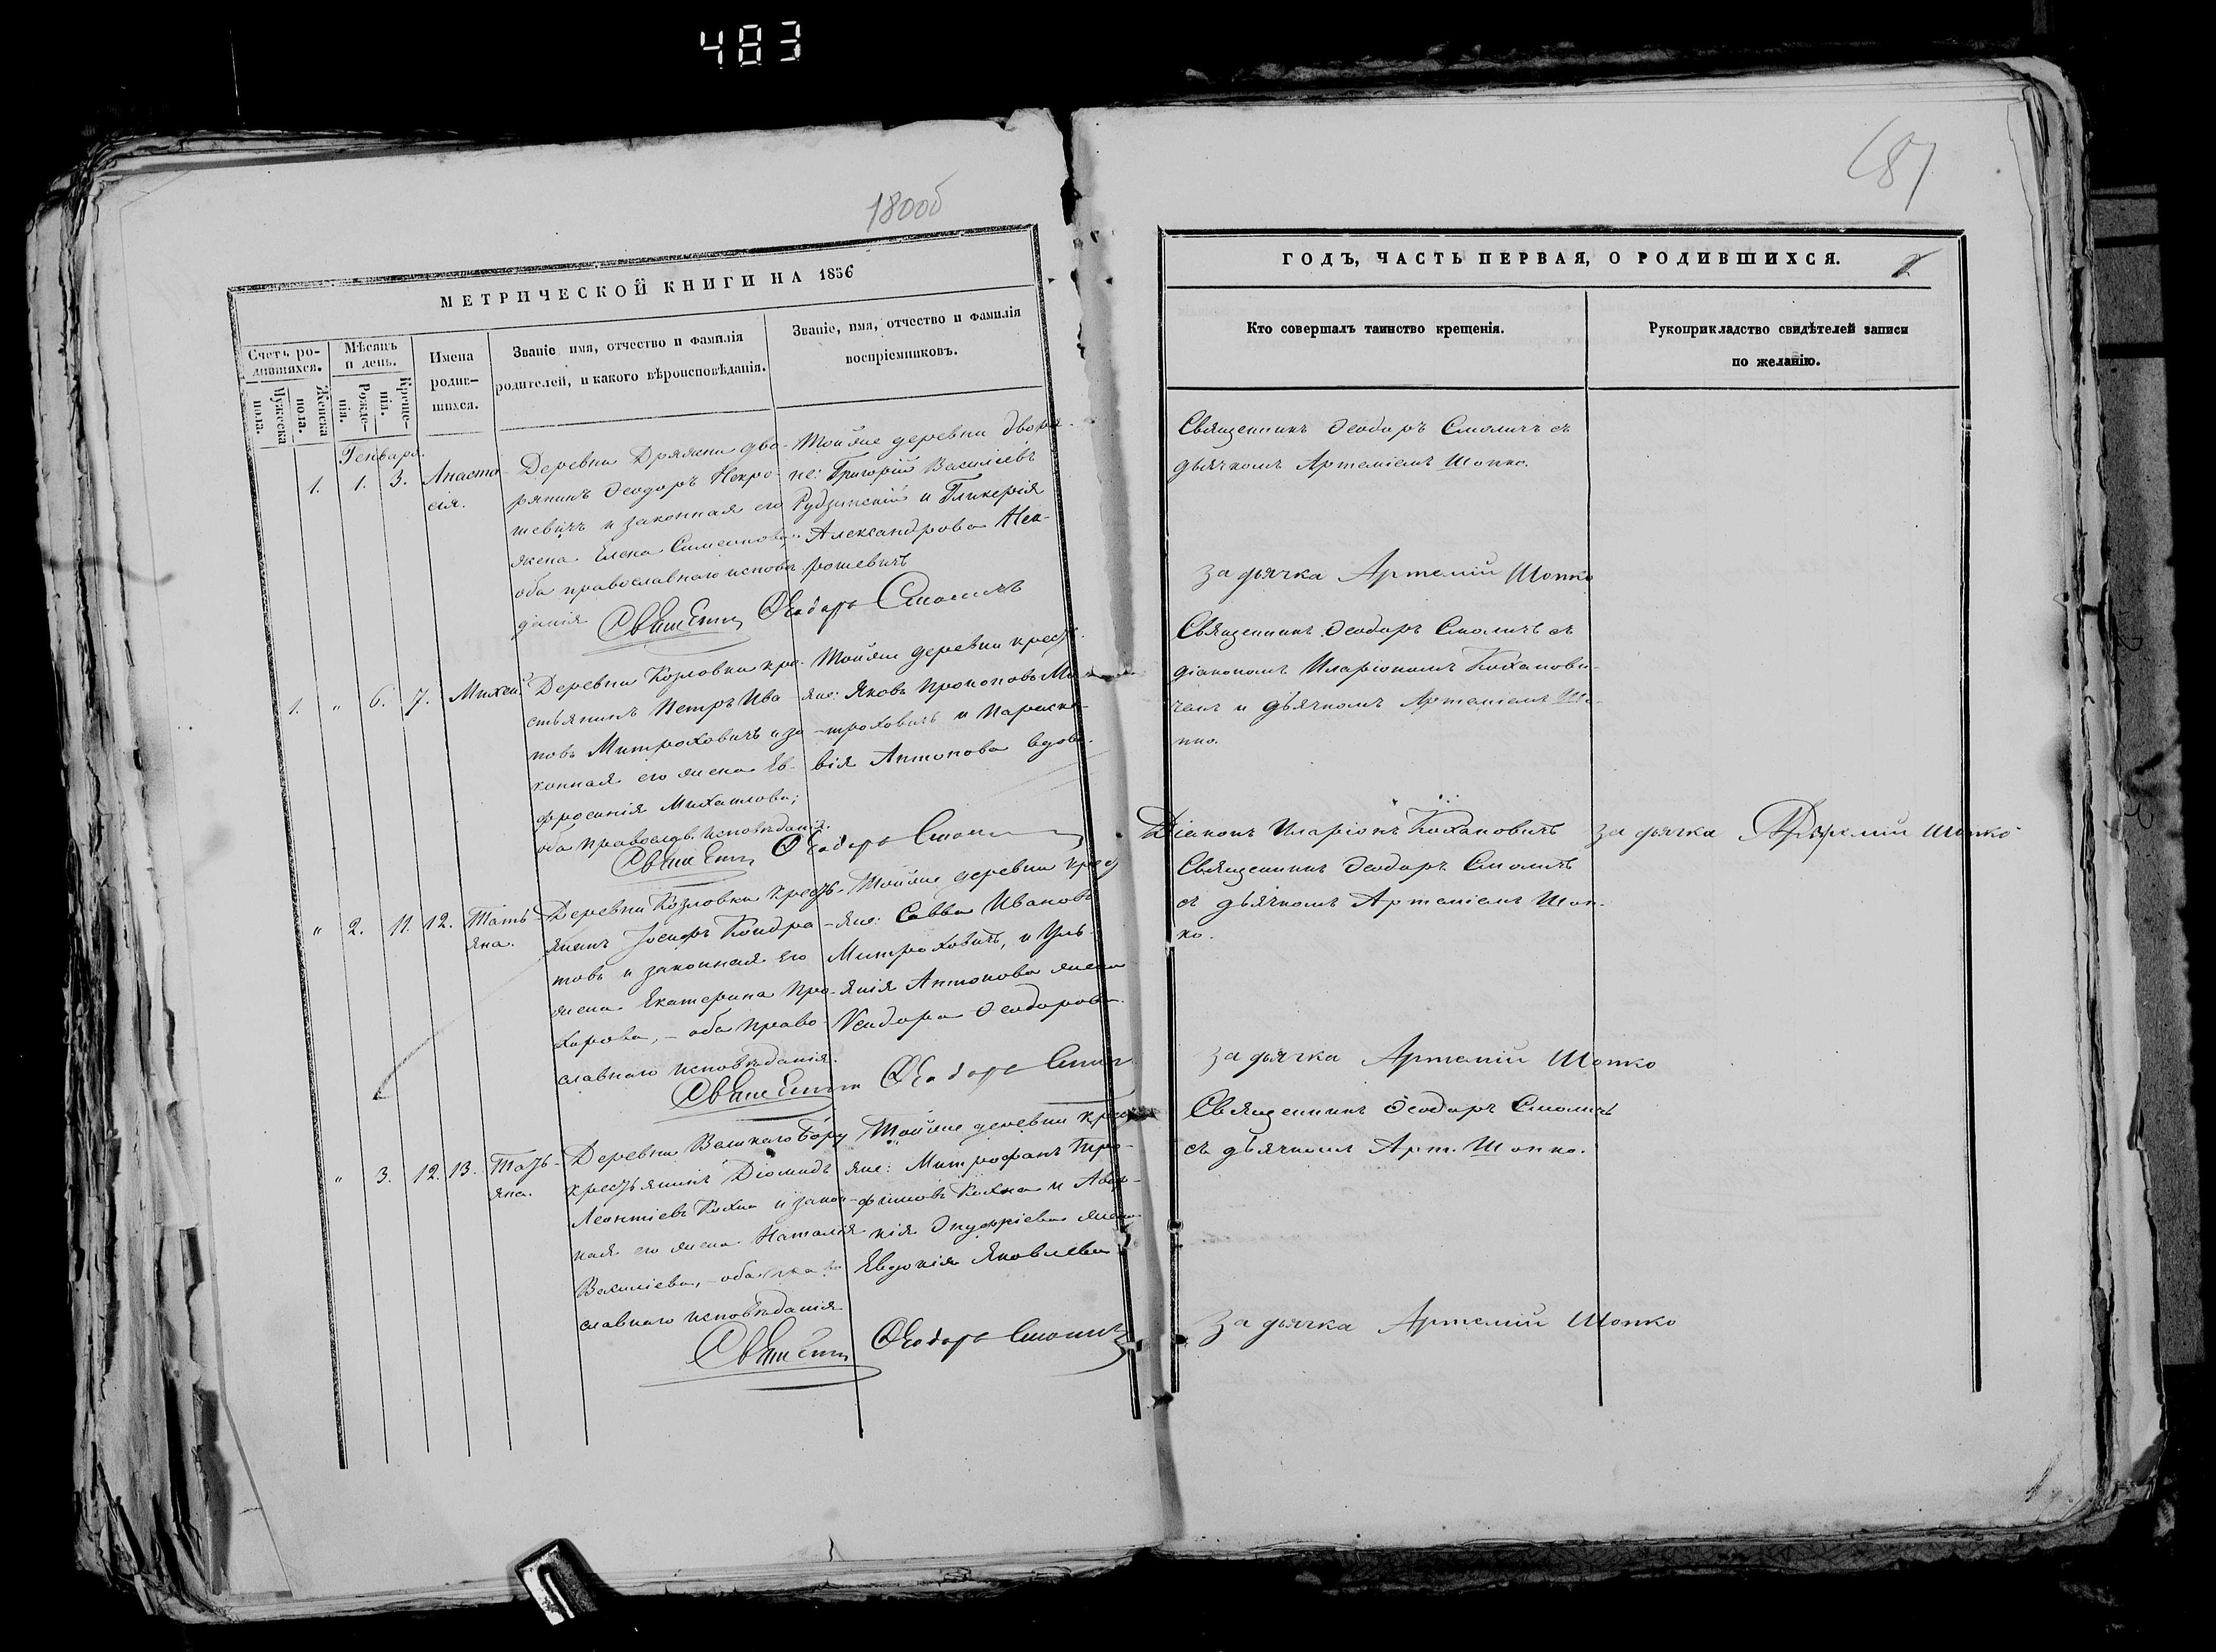 483
180об
МЕТРИЧЕСКОЙ КНИГИ НА 1856
Счетъ ро-
дившихся.
Мужеска
пола.
Женска
пола.
Мѣсяцъ
и день.
Рожде-
нія.
Креще-
нія.
Имена
родив-
шихся.
Званіе имя, отчество и фамилія
родителей, и какого вѣроисповѣданія.
Званіе, имя, отчество и фамилія
воспріемниковъ.
Генваря.
1. 1. 3.
Анаста-
сія.
Деревни дво-
рянинъ Ѳеодоръ Некро-
шевичъ и законная его
жена Елена Симеонова,
оба православнаго исповѣ-
данія
Тойже деревни дворя-
не: Григорій Василіевъ
Рудзинскій и Гликерія
Александрова Нек-
рошевичъ
Ѳеодоръ Смоличъ
1. " 6. 7.
Михей
Деревни Козловки кре-
стьянинъ Петръ Ива-
новъ Митроховичъ и за-
конная его жена Ев-
фросинія Михайлова;
оба православ. исповѣданія.
Тойже деревни крест-
яне: Яковъ Прокоповъ Ми-
троховичъ и Параске-
вія Антонова вдова.
Ѳеодоръ
" 2. 11. 12.
Тать-
яна.
Деревни Козловки кресть-
янинъ Іосифъ Кондра-
товъ и законная его
жена Екатерина Про-
хорова, - оба право-
славнаго исповѣданія.
Тойже деревни крест
яне: Савва Ивановъ
Митроховичъ, и Уль-
янія Антонова жена
Ѳеодорова
Ѳеодоръ
" 3. 12. 13.
Тать-
яна.
Деревни Великаго Бору
крестьянинъ Діомидъ
Леонтіевъ Кохна и закон-
ная его жена Наталія
Василіева, - оба право
славнаго исповѣданія
Тойже деревни крест
яне: Митрофанъ Тро-
фимовъ Кохна и
жена
Евдокія Яковлева
Ѳеодоръ Смоличъ
187
ГОДЪ, ЧАСТЬ ПЕРВАЯ, О РОДИВШИХСЯ.
Кто совершалъ таинство крещенія.
Рукоприкладство свидѣтелей записи
по желанію.
Священникъ Ѳеодоръ Смоличъ съ
дьячкомъ Артеміемъ Шопко.
За дьячка Артемій Шопко
Священникъ Ѳеодоръ Смоличъ съ
діакономъ Иларіономъ Коханови-
чемъ и дьячкомъ Артеміемъ Шо-
пко.
Діаконъ Иларіонъ Кохановичъ
за дьячка Артемій Шопко
Священникъ Ѳеодоръ Смоличъ
съ дьячкомъ Артеміемъ Шоп-
ко.
За дьячка Артемій Шопко
Священникъ Ѳеодоръ Смоличъ
съ дьячкомъ Арт. Шопко.
За дьячка Артемій Шопко